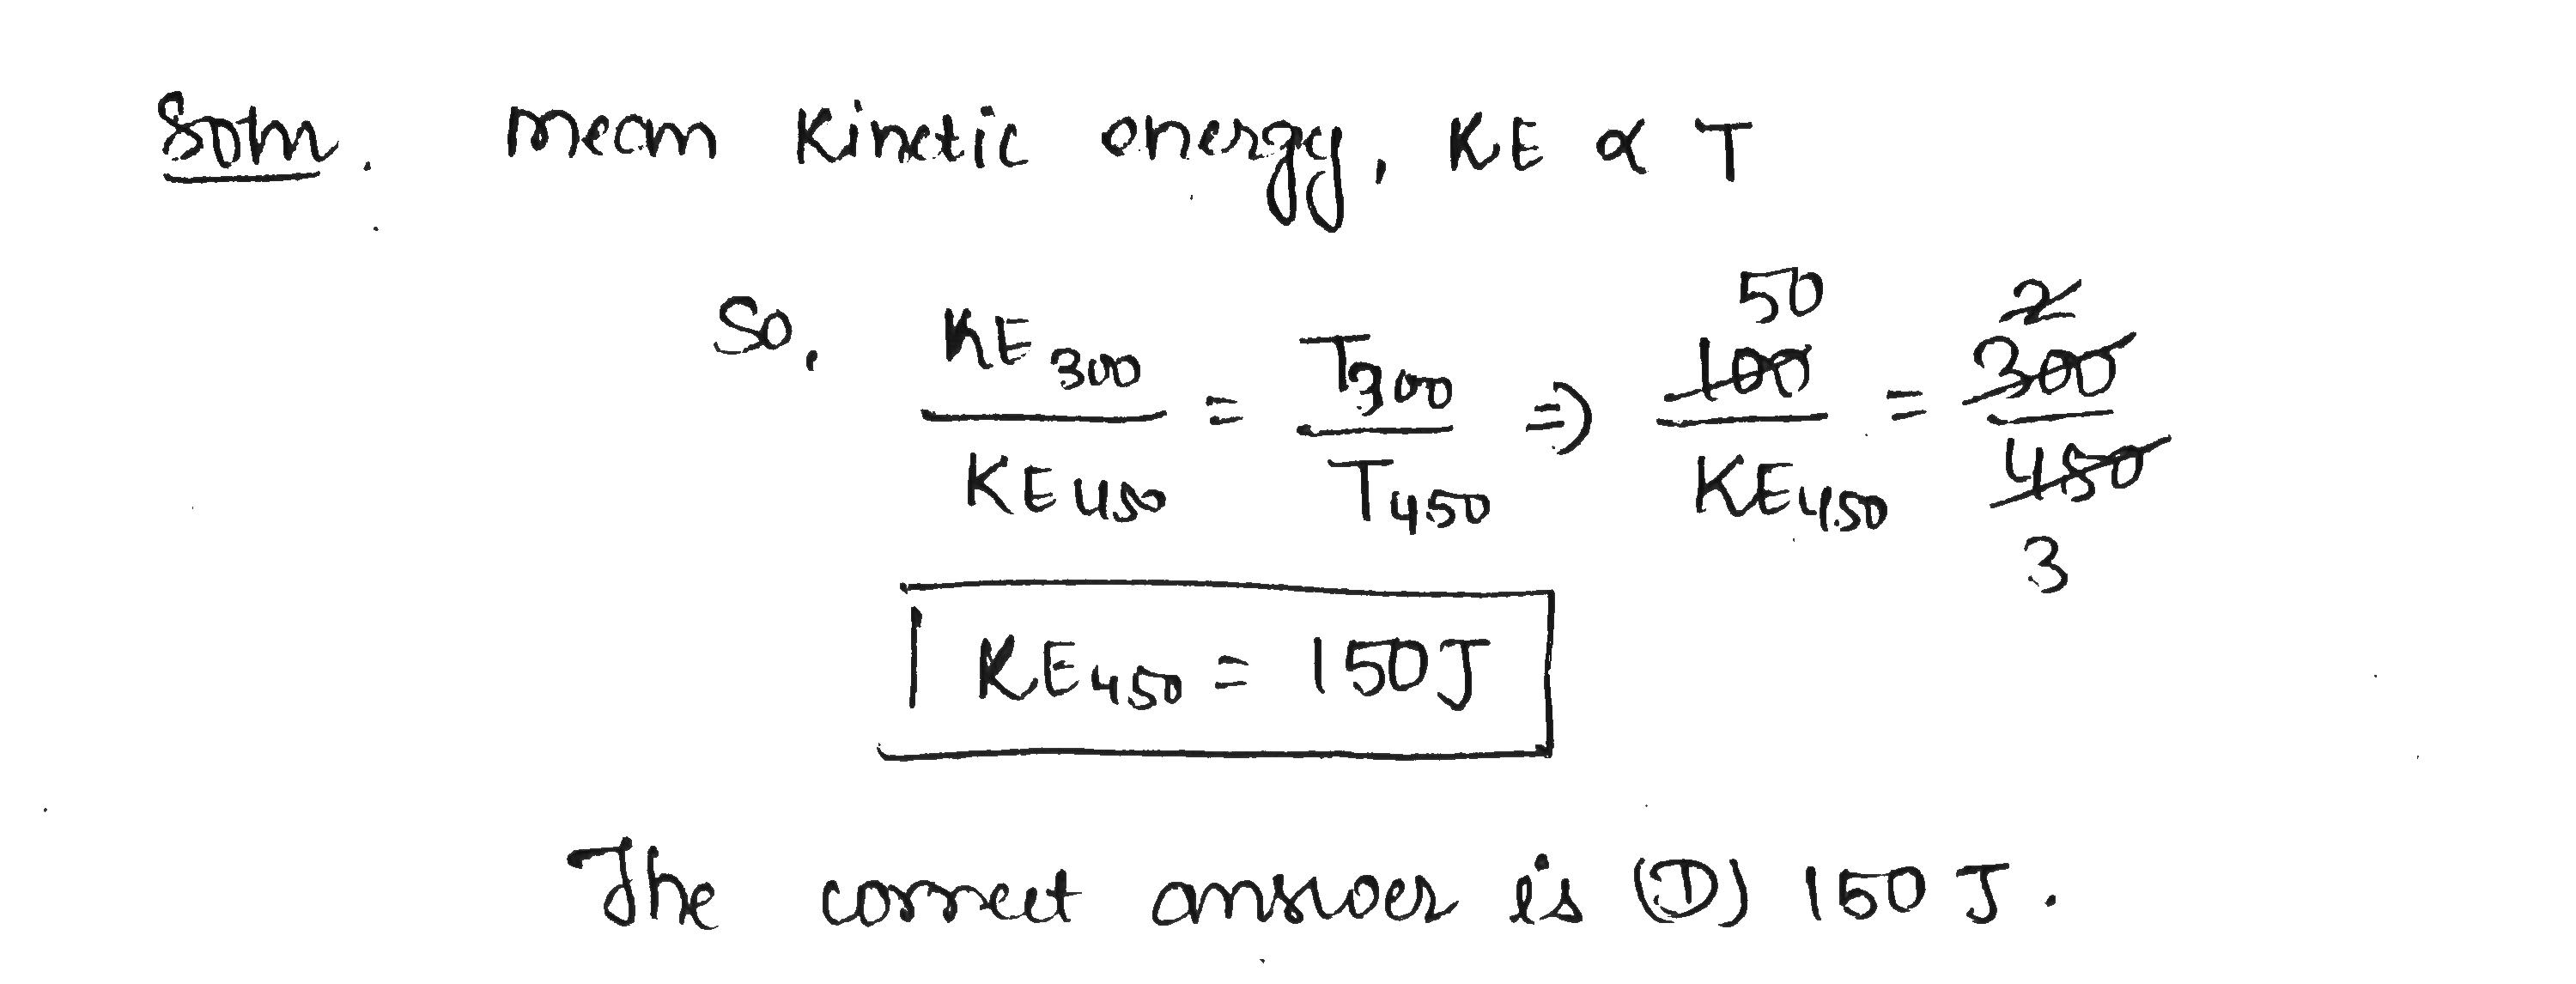 Soln. mean Kinetic energy, KE ∝ T
So, KE300 / KE450 = T300 / T450 ⇒ 50 100 / KE450 = 2 300 / 450 3
KE450 = 150J
The correct answer is (D) 150 J.